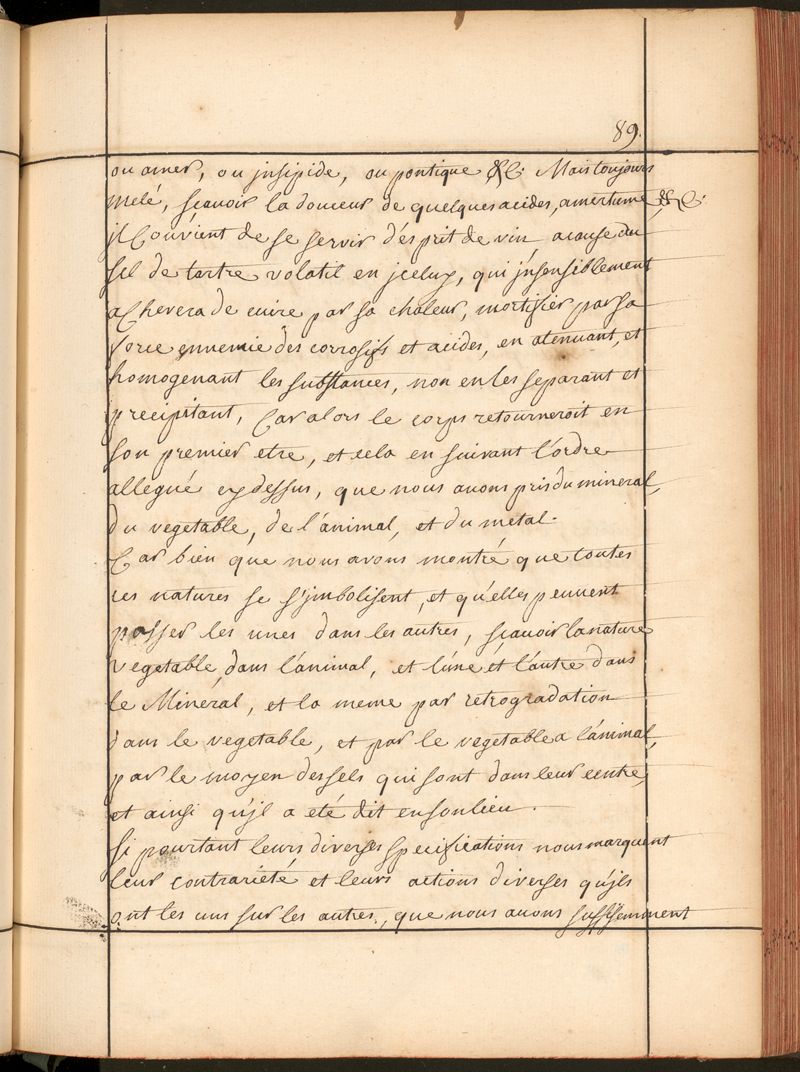 89.
ou amer, ou jnsipide, ou pontique &c. Mais toujours
melé, scauoir la douceur de quelques acides, amertume, &c.
jl Conuient de se servir d'esprit de vin, a cause du
sel de tartre volatil en jceluy, qui jnsensiblement
achevera de cuire par sa chaleur, mortifier par sa
force ennemie des corrosifs et acides, en atenuant, et
homogenant les substances, non en les separant et
precipitant, Car alors le corps retourneroit en
son premier etre, et cela en suivant l'ordre
allegué cy dessus, que nous auons pris du mineral,
du vegetable, de l'animal, et du metal.
Car bien que nous avons montré que toutes
ces natures se s'jmbolisent, et qu'elles peuuent
passer les unes dans les autres, scauoir la nature
vegetable dans l'animal, et l'une et l'autre dans
le Minéral, et la meme par retrogradation
dans le vegetable, et par le vegetable a l'animal,
par le moyen des sels qui sont dans leur centre,
et ainsi qu'jl a eté dit en son lieu.
si pourtant leurs diverses specifications nous marquent
leur contrarieté et leurs actions diverses qu'jls
ont les uns sur les autres, que nous auons suffisemment